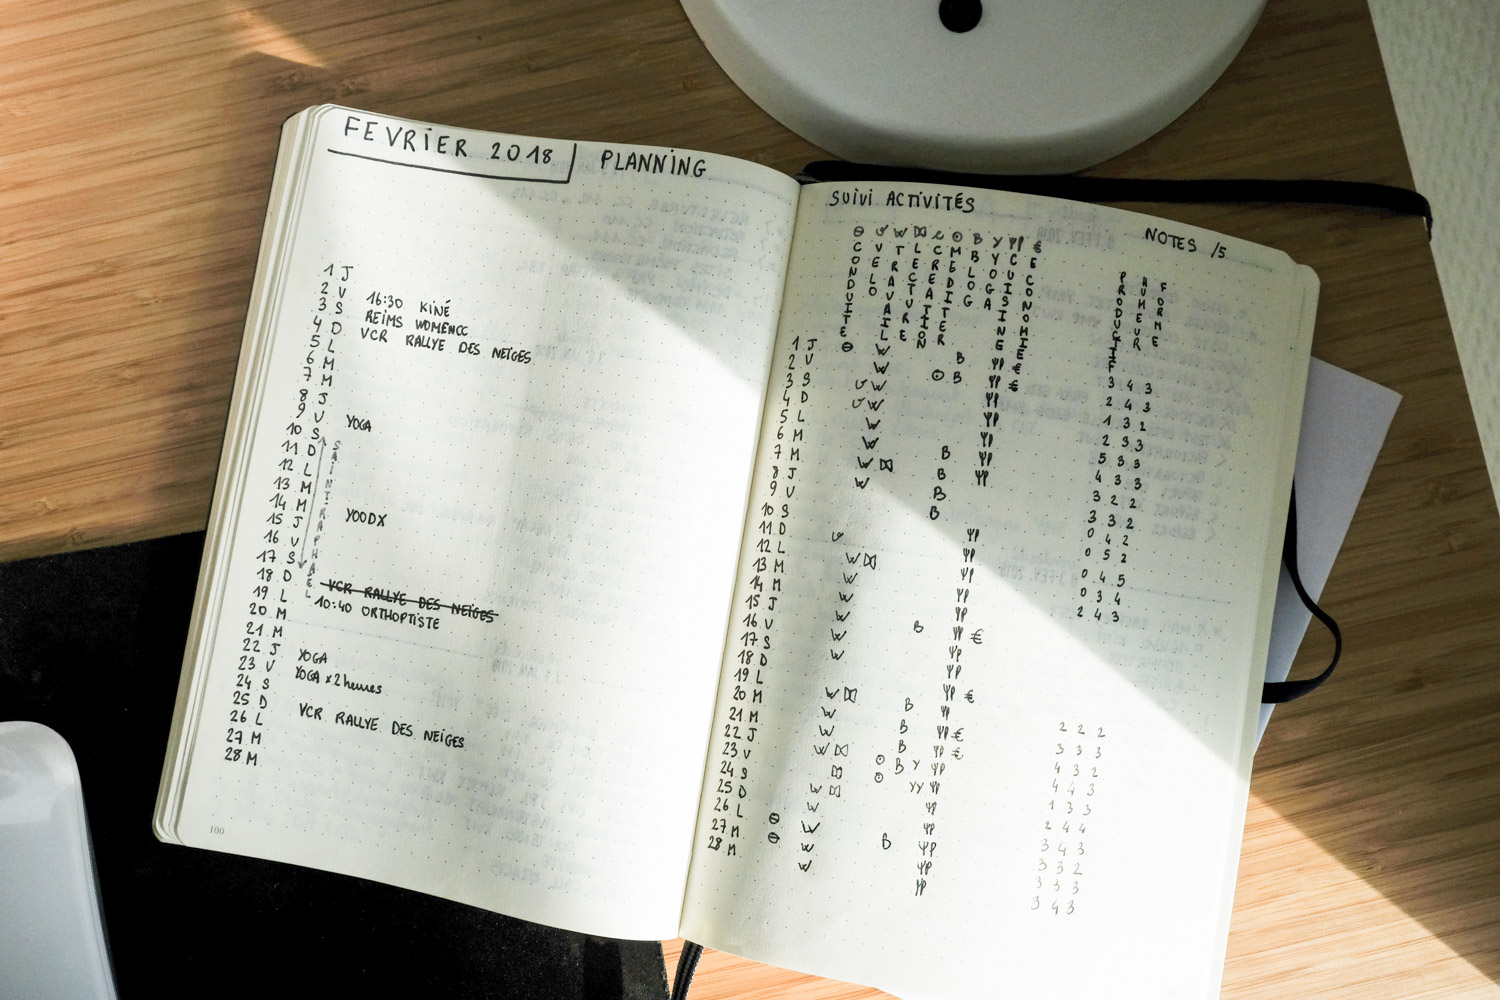 FEVRIER 2018 PLANNING
1 J
2 V 16:30 KINÉ
3 S REIMS WOMENCC
4 D VCR RALLYE DES NEIGES
5 L
6 M
7 M
8 J
9 V YOGA
10 S
11 D
12 L
13 M
14 M YOODX
15 J
16 V
17 S
SAINT RAPHAEL
18 D VCR RALLYE DES NEIGES
19 L 10:40 ORTHOPTISTE
20 M
21 M
22 J YOGA
23 V YOGA x 2 heures
24 S
25 D VCR RALLYE DES NEIGES
26 L
27 M
28 M
100
SUIVI ACTIVITÉS
NOTES /5
W B Y €
CONDUITE
VELO
TRAVAIL
LECTURE
CREATION
MEDITER
BLOG
YOGA
CUISING
ECONOMIE
PRODUCTIF
HUMEUR
FORME
1 J W B € 3 4 3
2 V W B € 2 4 3
3 S W 1 3 2
4 D W 2 3 3
5 L W 5 3 3
6 M W B 4 3 3
7 M W B 3 2 2
8 J W B 3 3 2
9 V B 0 4 2
10 S 0 5 2
11 D 0 4 5
12 L W 0 3 4
13 M W 2 4 3
14 M W
15 J W B €
16 V W
17 S W
18 D €
19 L W B 2 2 2
20 M W B € 3 3 3
21 M W B € 4 3 2
22 J W B Y 4 4 3
23 V YY 1 3 3
24 S W 2 4 4
25 D W 3 4 3
26 L W B 3 3 2
27 M W 3 3 3
28 M W 3 4 3